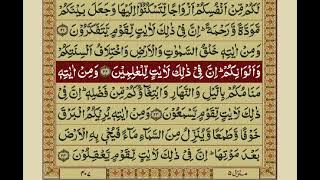 لَكُمْ مِّنْ اَنْفُسِكُمْ اَزْوَاجًا لِّتَسْكُنُوْۤا اِلَيْهَا وَجَعَلَ بَيْنَكُمْ
مَّوَدَّةً وَّرَحْمَةً ؕ اِنَّ فِيْ ذٰلِكَ لَاٰيٰتٍ لِّقَوْمٍ يَّتَفَكَّرُوْنَ ﴿۲۱﴾
وَمِنْ اٰيٰتِهٖ خَلْقُ السَّمٰوٰتِ وَالْاَرْضِ وَاخْتِلَافُ اَلْسِنَتِكُمْ
وَاَلْوَانِكُمْ ؕ اِنَّ فِيْ ذٰلِكَ لَاٰيٰتٍ لِّلْعٰلِمِيْنَ ﴿۲۲﴾ وَمِنْ اٰيٰتِهٖ
مَنَامُكُمْ بِالَّيْلِ وَالنَّهَارِ وَابْتِغَآؤُكُمْ مِّنْ فَضْلِهٖ ؕ اِنَّ فِيْ
ذٰلِكَ لَاٰيٰتٍ لِّقَوْمٍ يَّسْمَعُوْنَ ﴿۲۳﴾ وَمِنْ اٰيٰتِهٖ يُرِيْكُمُ الْبَرْقَ
خَوْفًا وَّطَمَعًا وَّيُنَزِّلُ مِنَ السَّمَآءِ مَآءً فَيُحْيٖ بِهِ الْاَرْضَ
بَعْدَ مَوْتِهَا ؕ اِنَّ فِيْ ذٰلِكَ لَاٰيٰتٍ لِّقَوْمٍ يَّعْقِلُوْنَ ﴿۲۴﴾
منزل ۵
۴۰۷